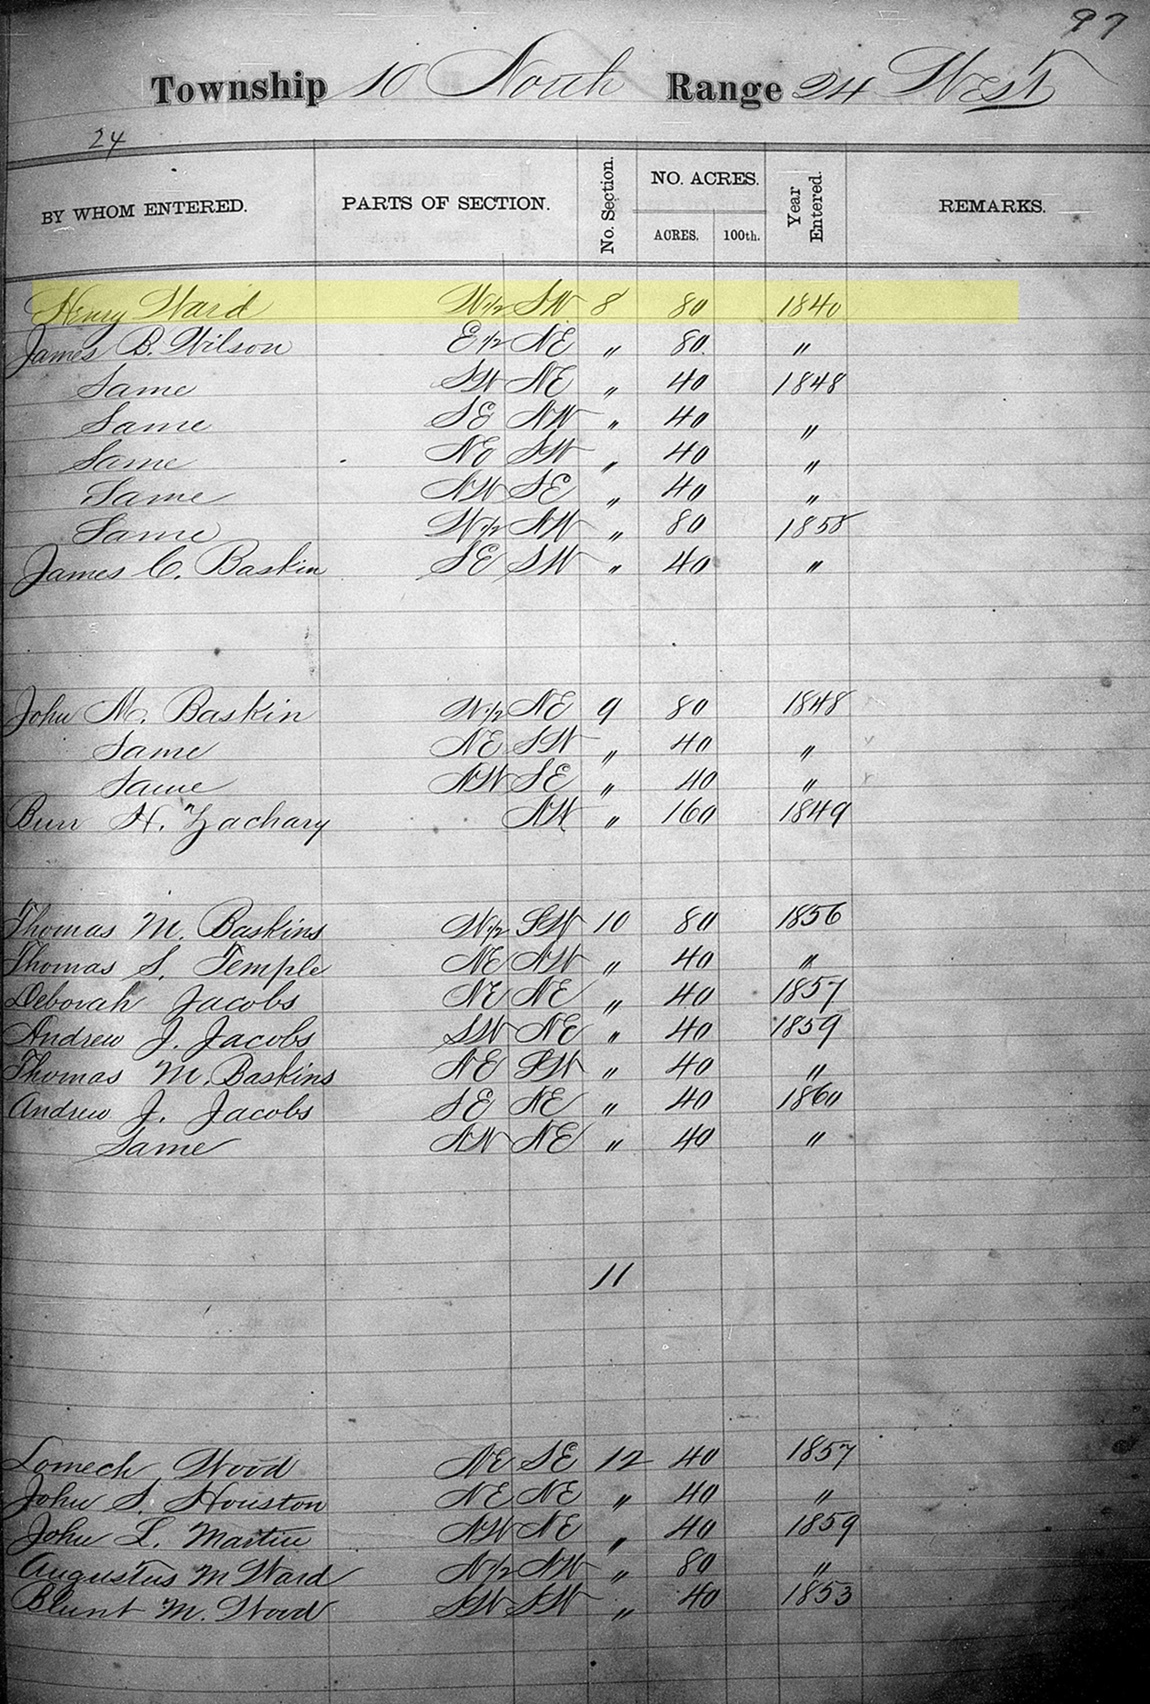 97
Township 10 North Range 24 West
24
BY WHOM ENTERED. PARTS OF SECTION. No. Section. NO. ACRES. ACRES. 100th. Year Entered. REMARKS.
Henry Ward W½ SW 8 80 1840
James B. Wilson E½ NE " 80 "
Same SW NE " 40 1848
Same SE NW " 40 "
Same NE SW " 40 "
Same NW SE " 40 "
Same W½ NW " 80 1858
James C. Baskin SE SW " 40 "
John M. Baskin W½ NE 9 80 1848
Same NE SW " 40 "
Same NW SE " 40 "
Burr H. Zachary NW " 160 1849
Thomas M. Baskins W½ SW 10 80 1856
Thomas S. Temple NE NW " 40 "
Deborah Jacobs NE NE " 40 1857
Andrew J. Jacobs SW NE " 40 1859
Thomas M. Baskins NE SW " 40 "
Andrew J. Jacobs SE NE " 40 1860
Same NW NE " 40 "
11
Lomech Wood NE SE 12 40 1857
John S. Houston NE NE " 40 "
John L. Martin NW NE " 40 1859
Augustus M Ward N½ NW " 80 "
Blunt M. Wood SW SW " 40 1853